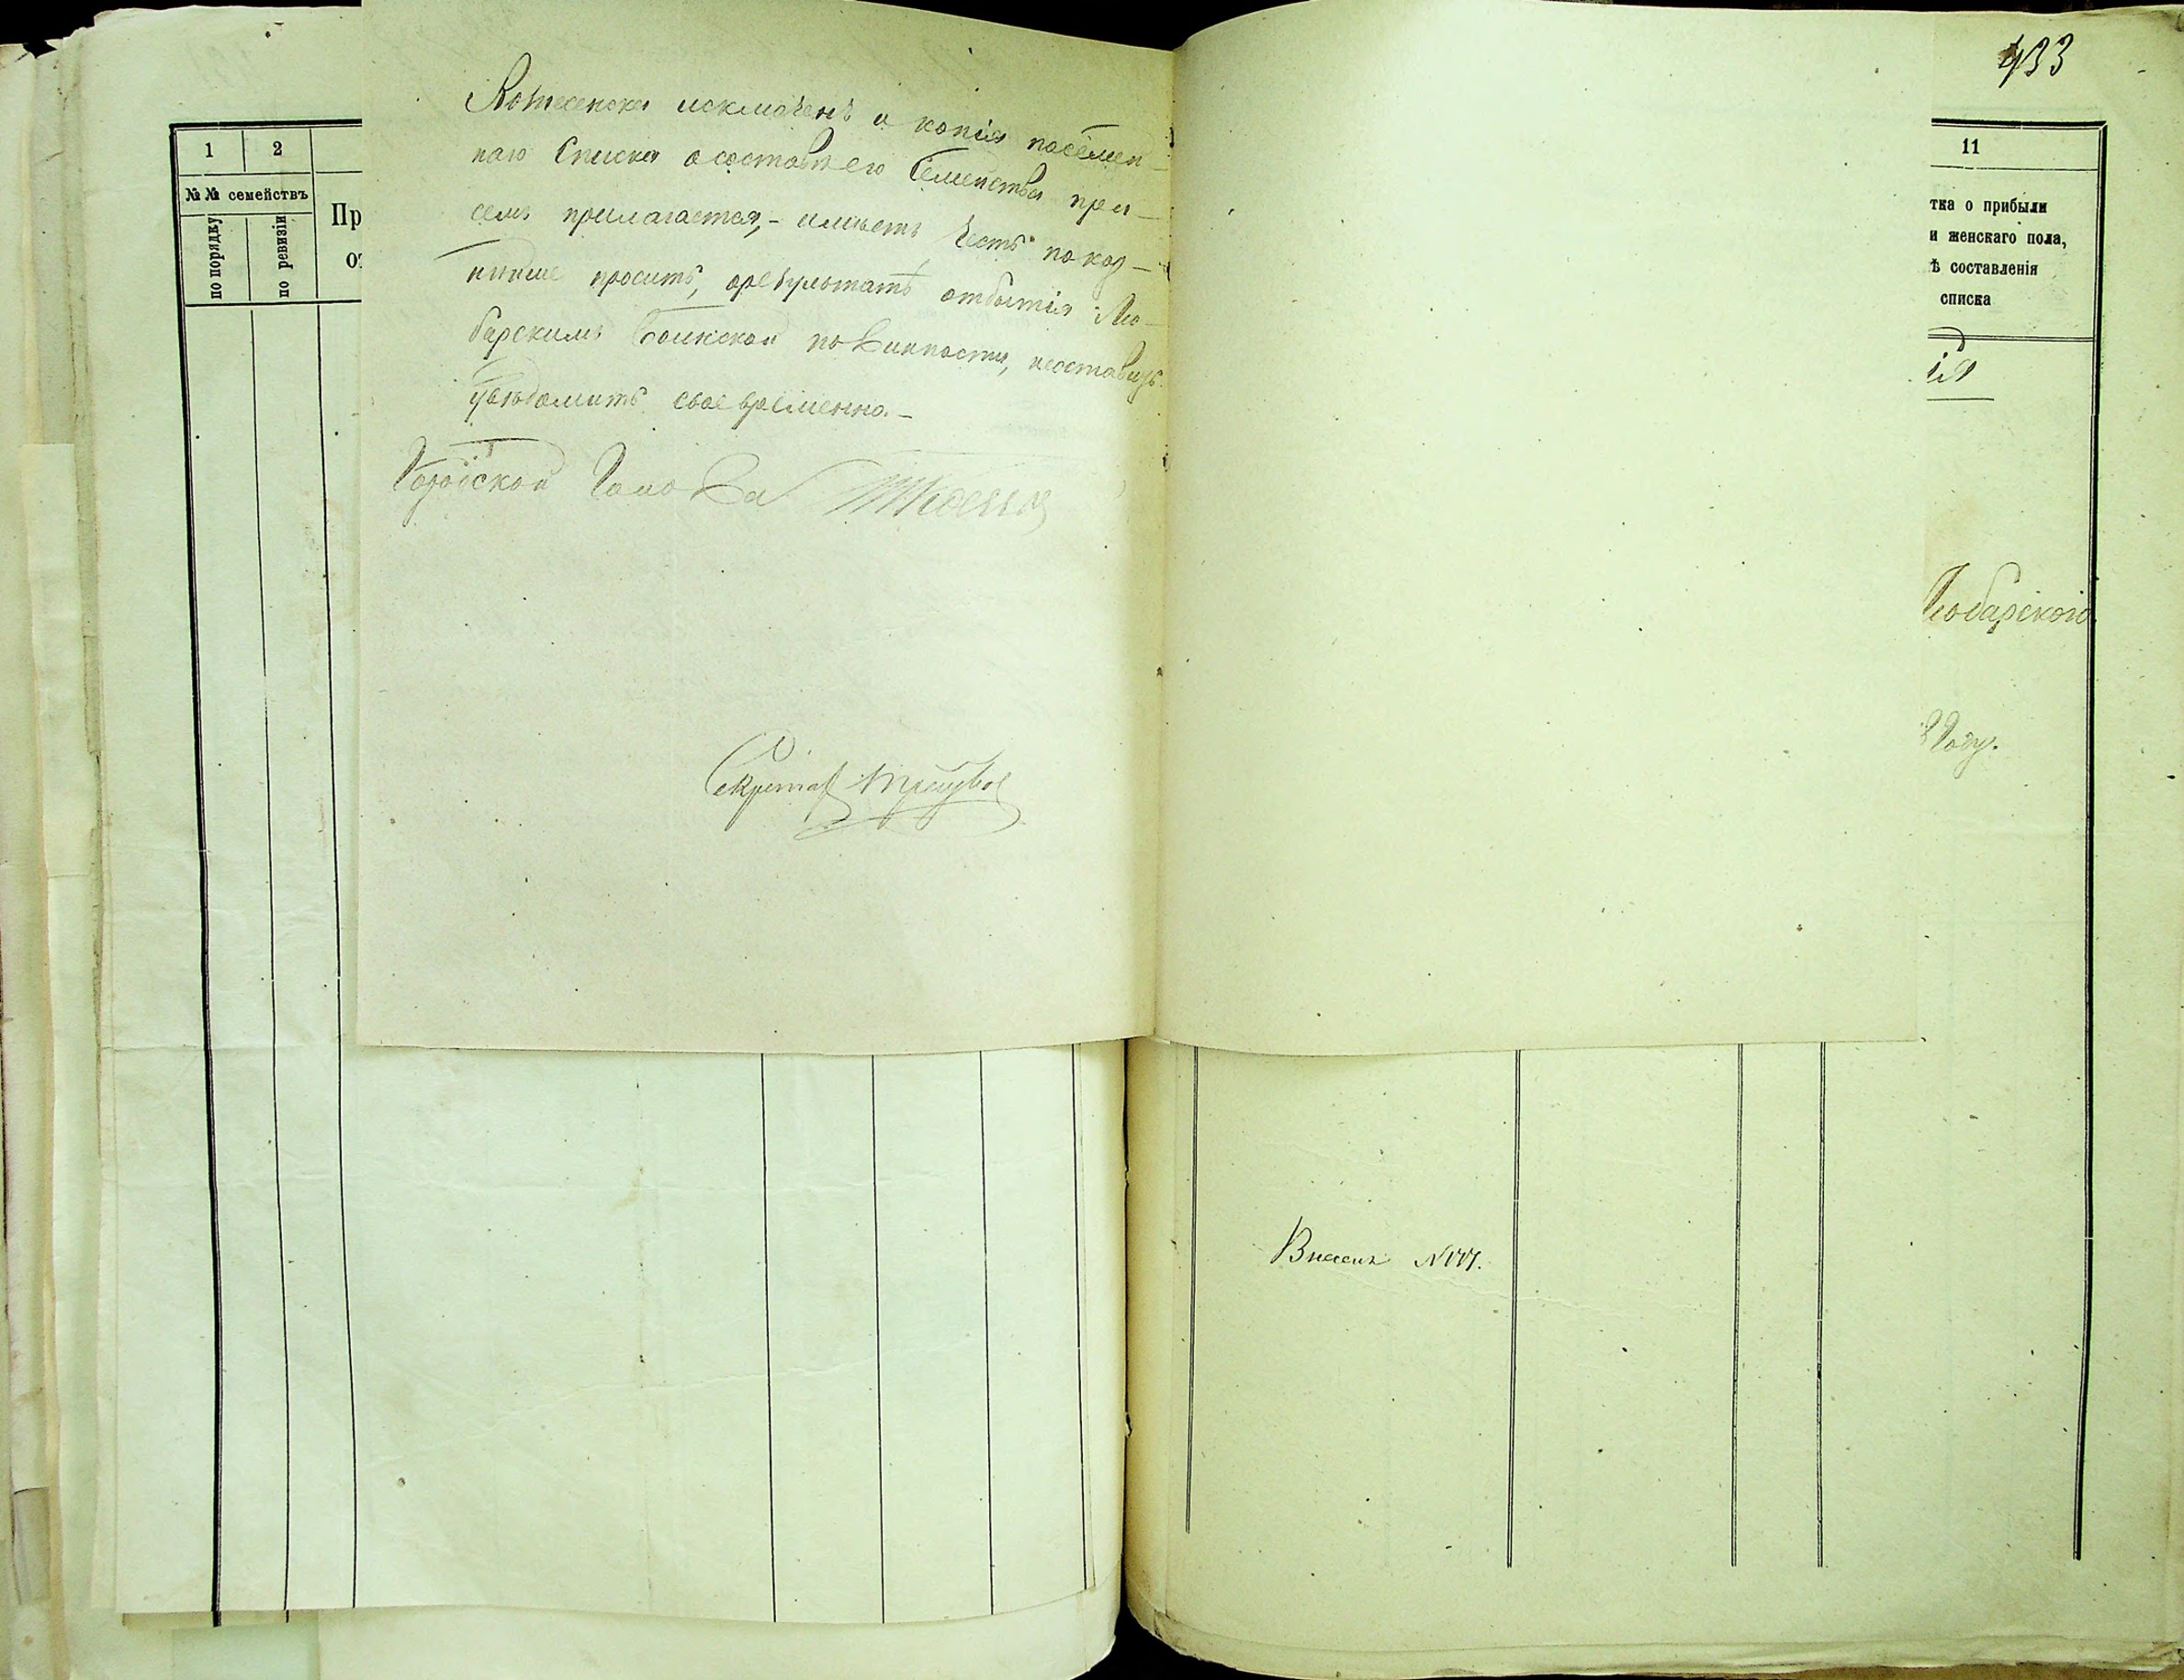 433
1 2
№№ семействъ
по порядку
по ревизіи
Пр
от
исключенъ и копія посемей-
наго списка о составѣ его семейства при
семъ прилагается, - имѣетъ честь покор-
нѣйше проситъ, о результатѣ отбытія Лю-
барскимъ воинской повинности, неоставить
увѣдомить своевременно. -
Городской Голова
Секретарь
11
тка о прибыли
и женскаго пола,
ѣ составленія
списка
ія
Любарскаго
Году.
Внесенъ №